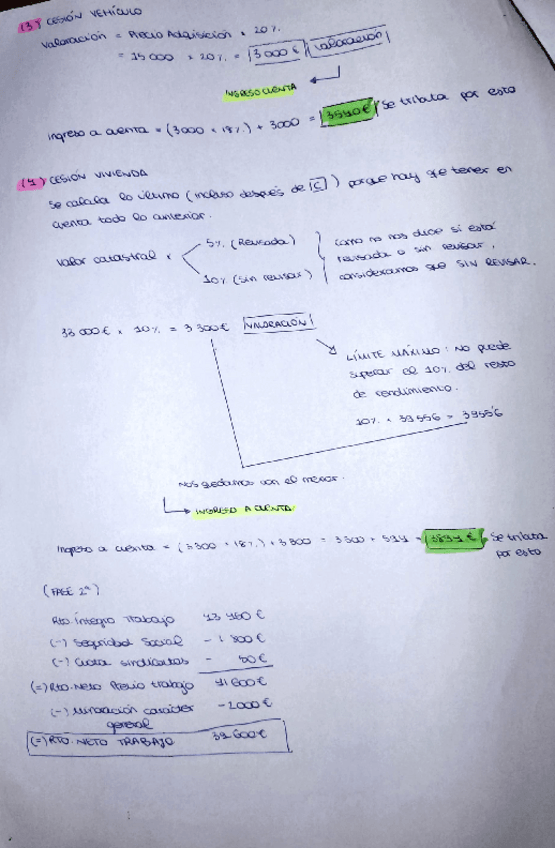 (3) CESIÓN VEHÍCULO
Valoración = Precio Adquisición x 20%
= 15 000 x 20% = 3 000 € Valoración
INGRESO CUENTA
Ingreso a cuenta = (3000 x 18%) + 3000 = 3540€ Se tributa por esto
(4) CESIÓN VIVIENDA
Se calcula lo último (incluso después de C) porque hay que tener en
cuenta todo lo anterior.
Valor catastral x
5% (Revisada)
10% (Sin revisar)
Como no nos dice si está
revisada o sin revisar,
consideramos que SIN REVISAR.
33 000€ x 10% = 3 300€ VALORACIÓN
LÍMITE MÁXIMO: No puede
superar el 10% del resto
de rendimiento.
10% x 39556 = 3955'6
Nos quedamos con el menor.
INGRESO A CUENTA
Ingreso a cuenta = (3300 x 18%) + 3300 = 3300 + 594 = 3894 € Se tributa
por esto
(FASE 2ª)
Rto. íntegro Trabajo 43 450 €
(-) Seguridad Social - 1 800 €
(-) Cuota sindicatos - 50 €
(=) Rto. Neto Previo trabajo 41 600 €
(-) Minoración carácter - 2000 €
general
(=) RTO. NETO TRABAJO 39 600 €